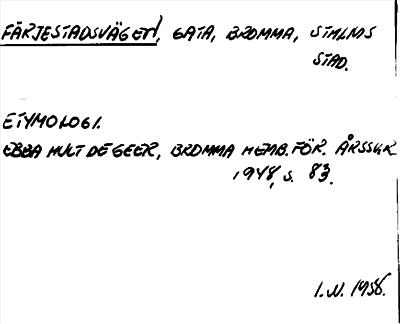 FÄRJESTADSVÄGEN, GATA, BROMMA, STHLMS
STAD.
ETYMOLOGI.
EBBA HULT DE GEER, BROMMA HEMB. FÖR. ÅRSSKR
1948, S. 83.
I.W. 1958.